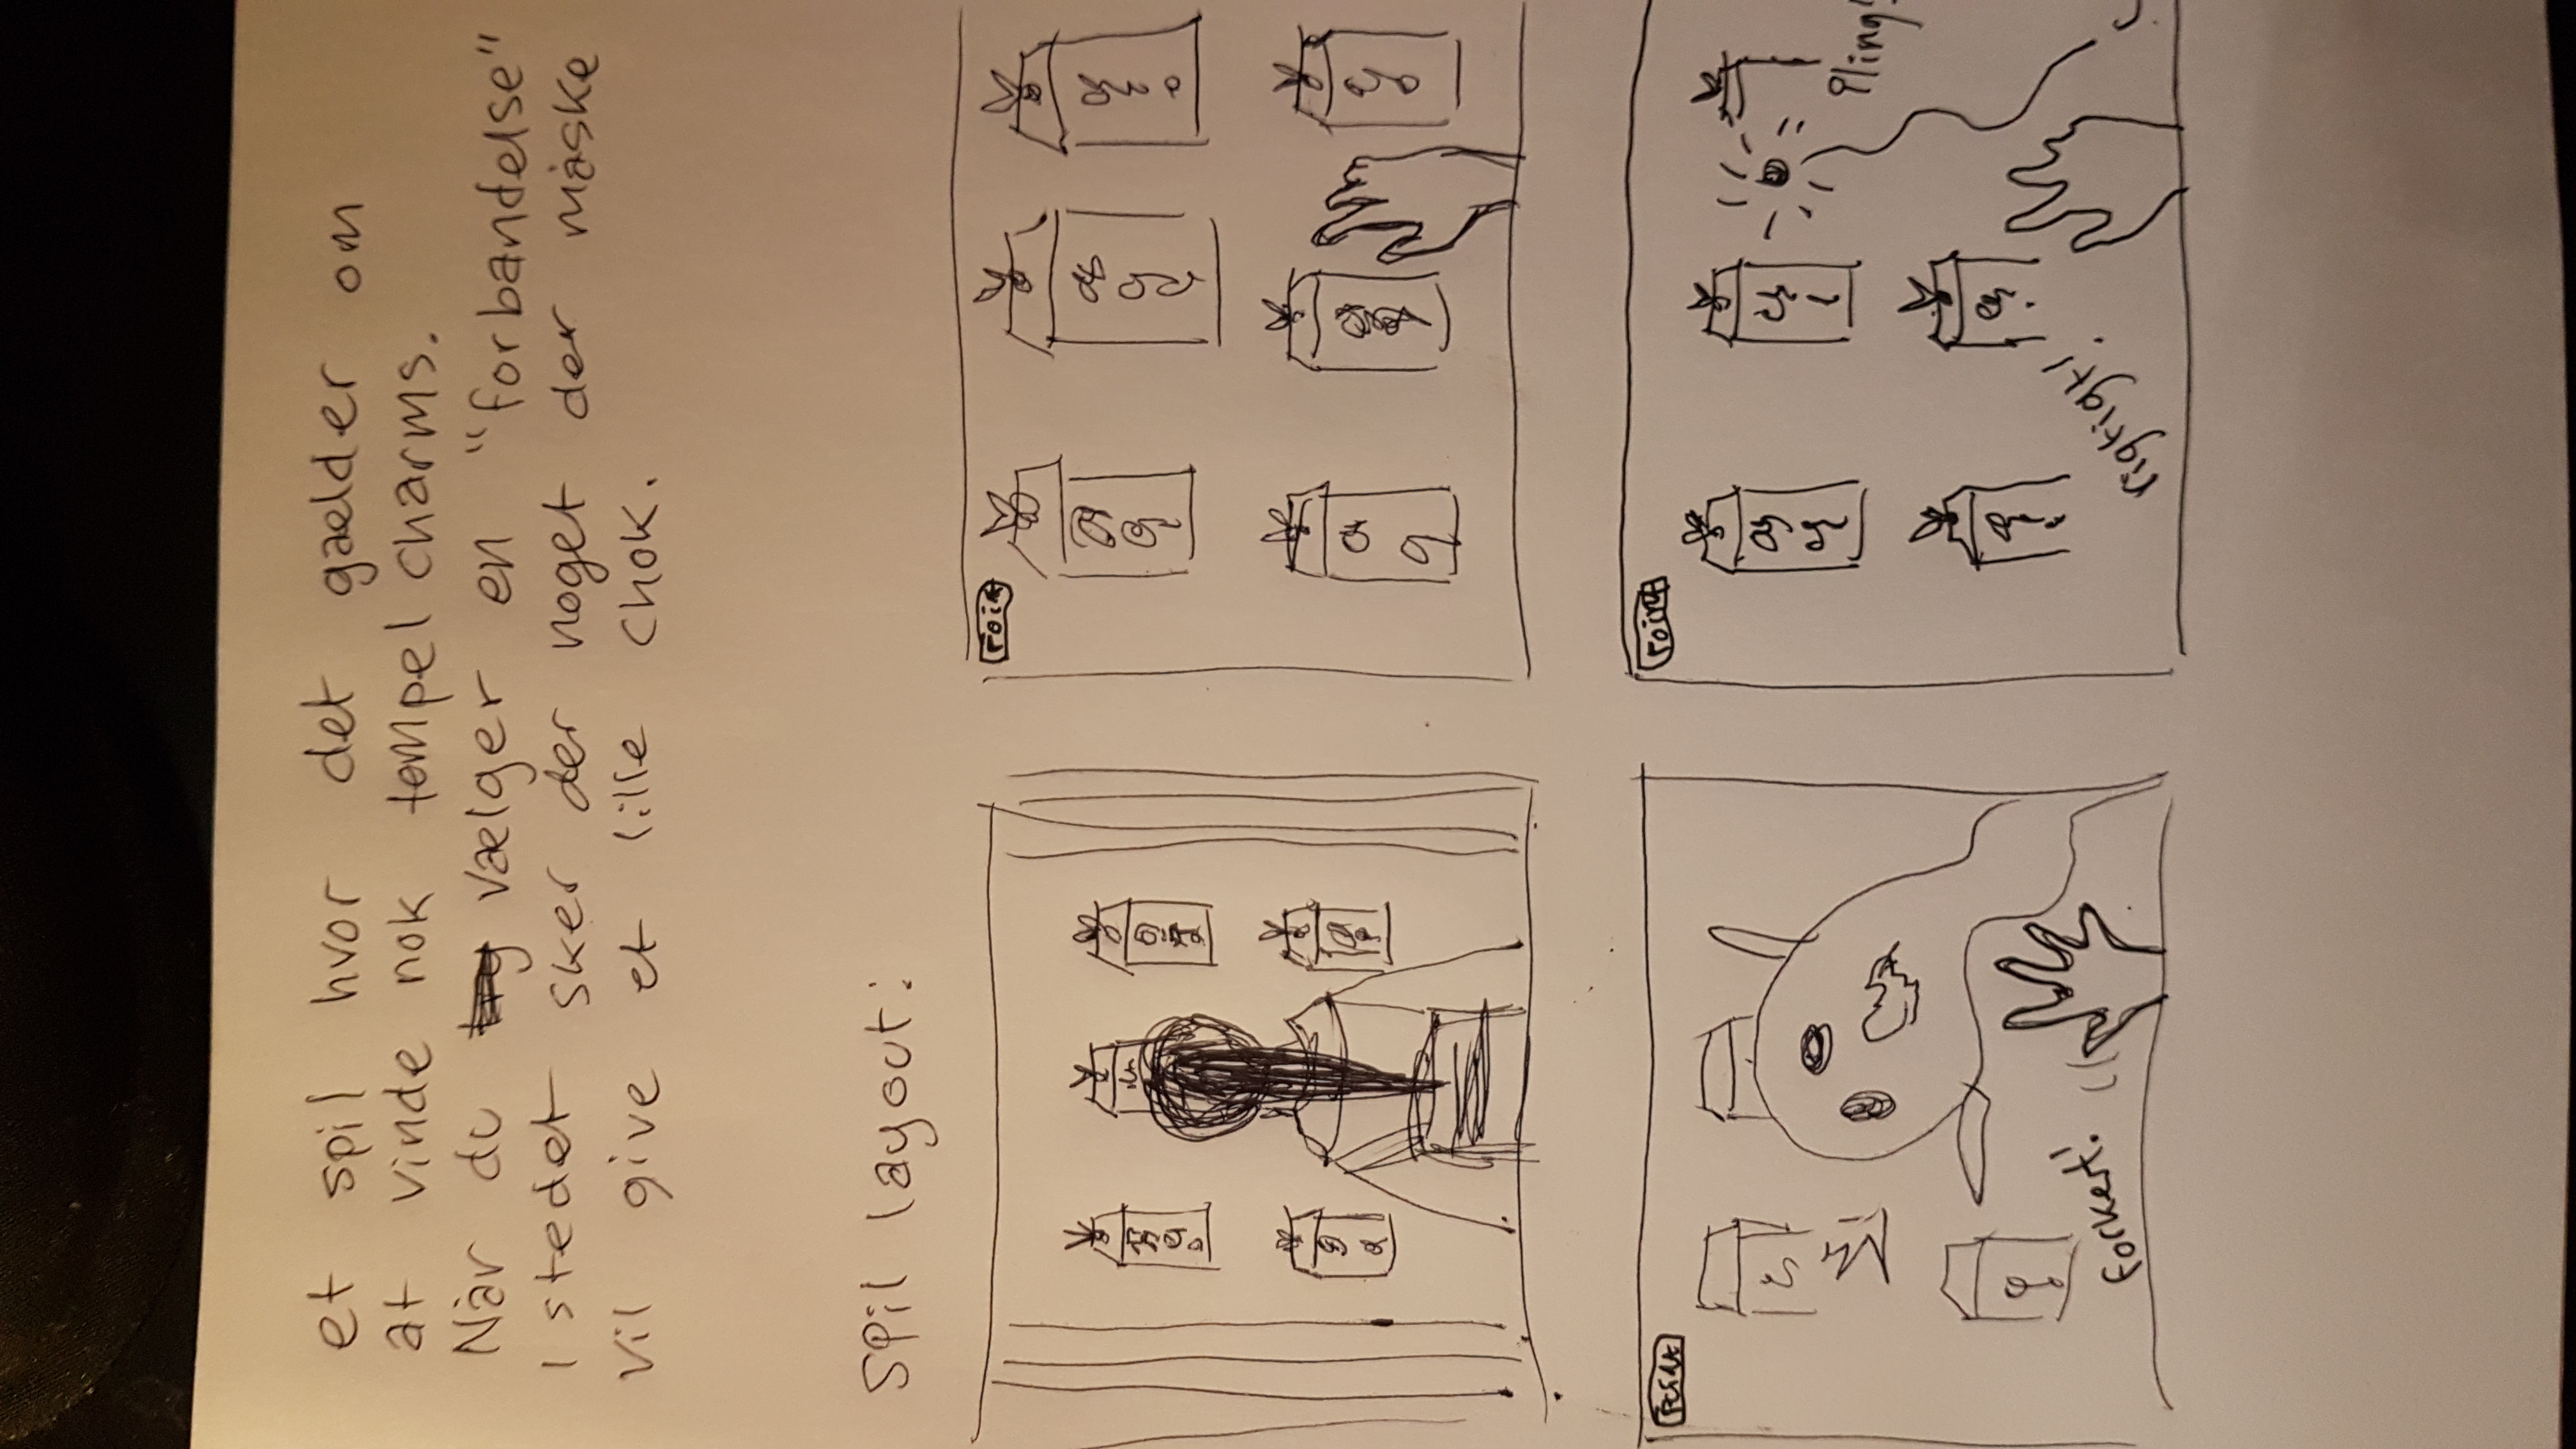 et spil hvor det gælder om
at vinde nok tempel charms.
Når du vælger en "forbandelse"
I stedet sker der noget der måske
vil give et lille chok.
Spil layout:
Point
Point
Pling!
forkert!
rigtigt!